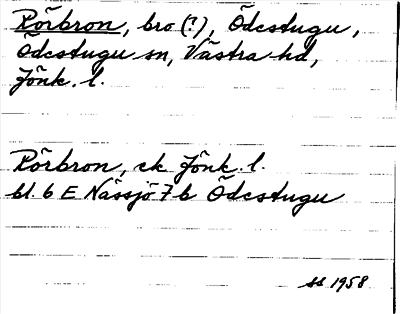 Rörbron, bro (?), Ödestugu,
Ödestugu sn, Västra hd,
Jönk. l.
Rörbron, ek Jönk. l.
bl. 6 E Nässjö 7 b Ödestugu
1958